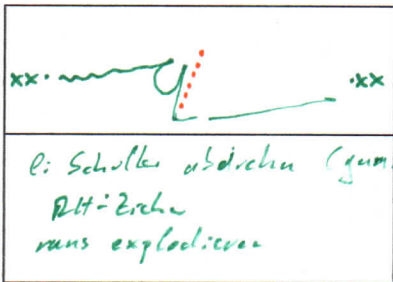 xx xx
li Schulter abdrehen (gam
RH-Ziehen
raus explodieren